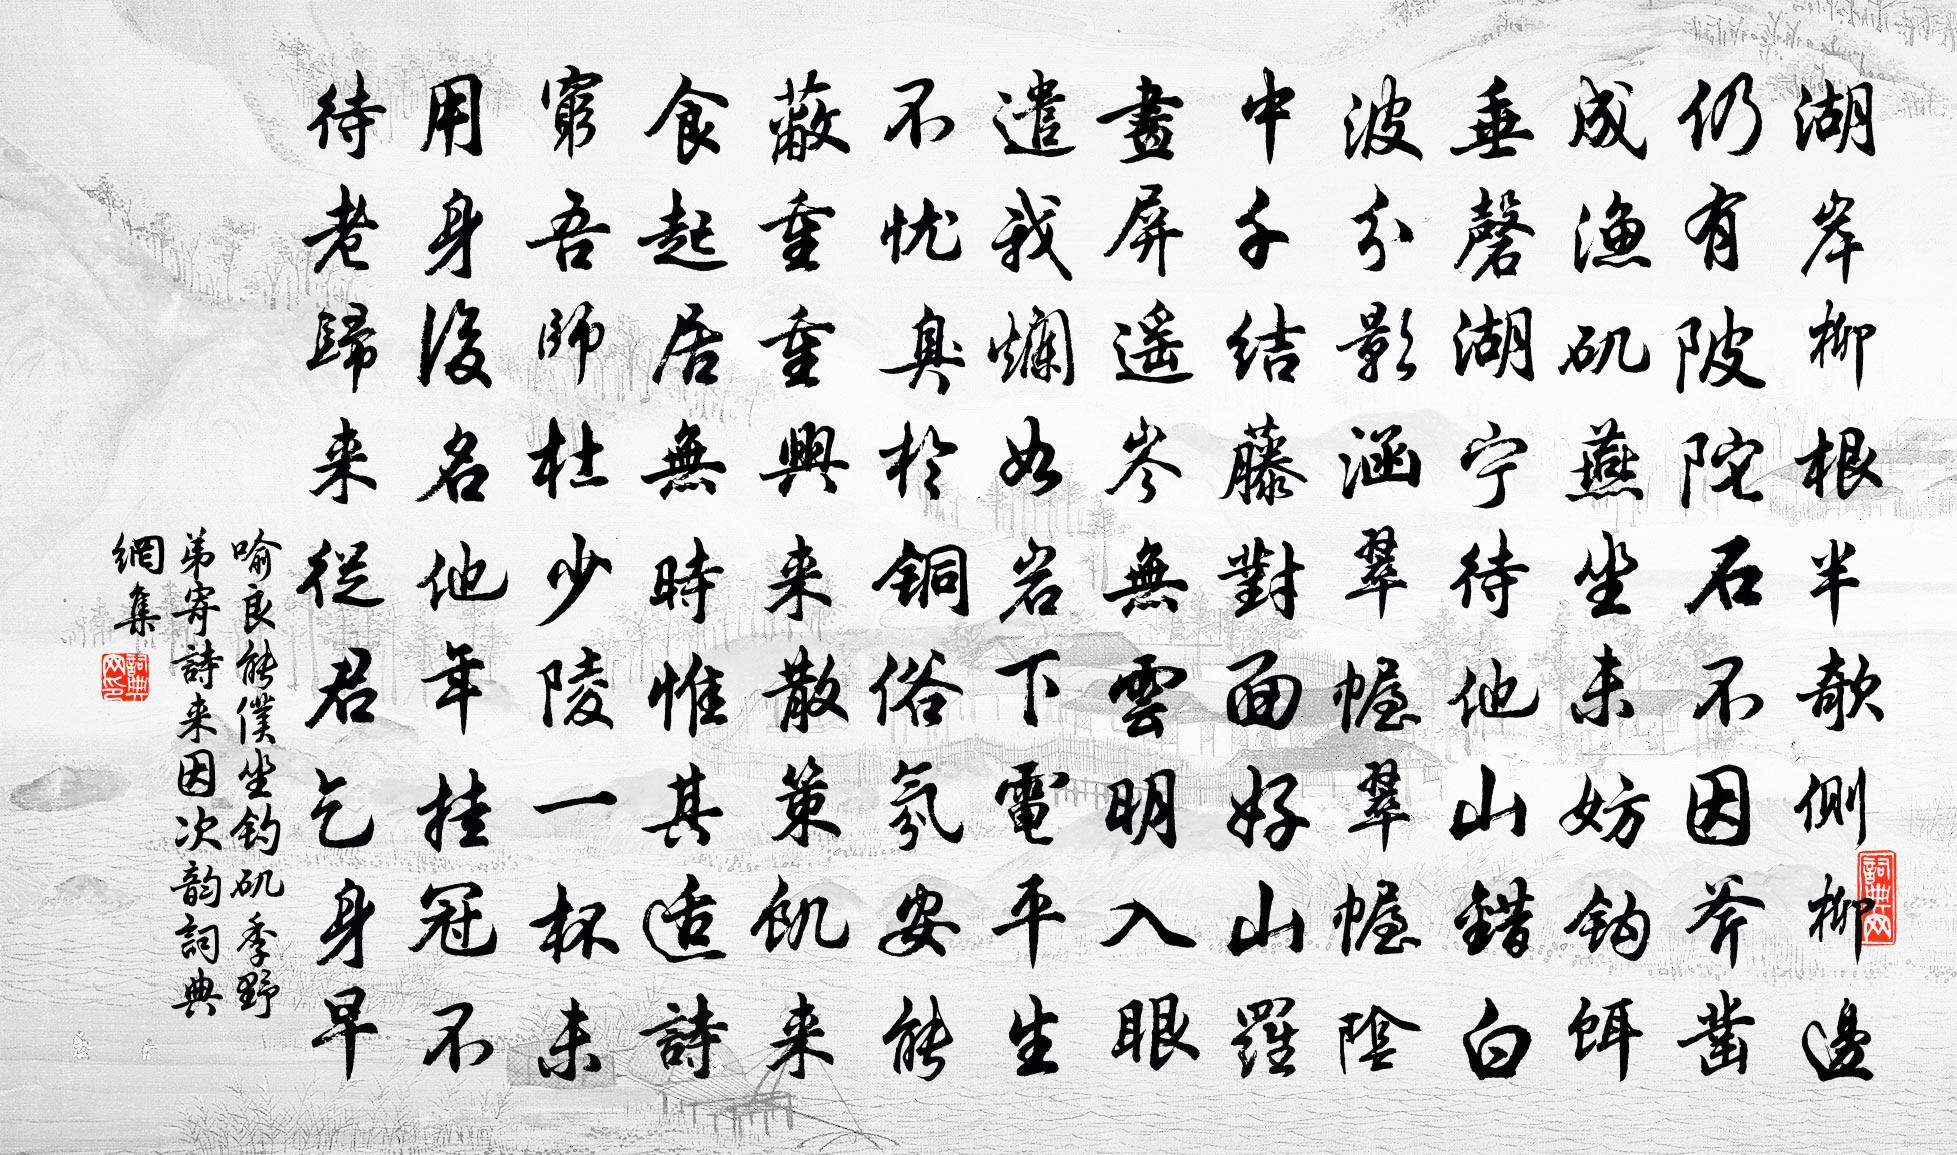 湖岸柳根半欹側柳邊
仍有陂陀石不因斧凿
成渔矶燕坐未妨钩饵
垂磬湖宁待他山錯白
波分影涵翠幄翠幄陰
中千结藤對面好山羅
畫屏遥岑無雲明入眼
遣我爛如岩下電平生
不忧臭於铜俗氛安能
蔽重重興来散策飢来
食起居無時惟其适詩
窮吾師杜少陵一杯未
用身後名他年挂冠不
待老歸来從君乞身早
喻良能僕坐钓矶季野
弟寄詩来因次韵詞典
網集
詞典网印
詞典网